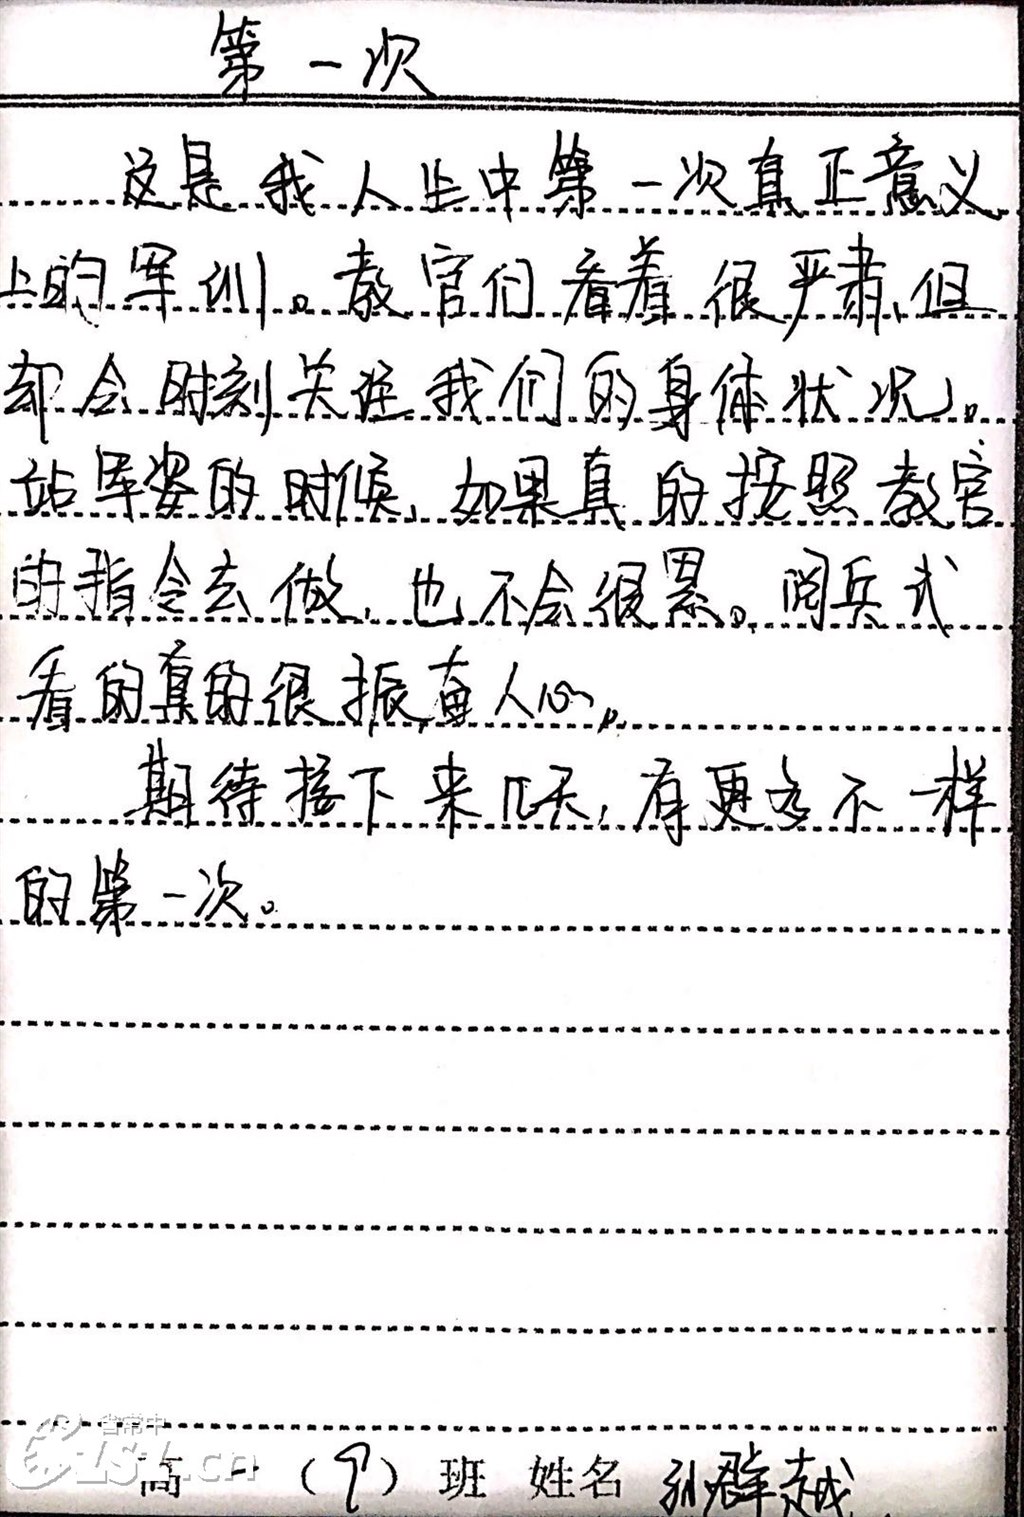 第一次
这是我人生中第一次真正意义
上的军训。教官们看着很严肃,但
却会时刻关注我们的身体状况。
站军姿的时候,如果真的按照教官
的指令去做,也不会很累。阅兵式
看的真的很振奋人心。
期待接下来几天,有更多不一样
的第一次。
省常中
高一(9)班 姓名 孙群越